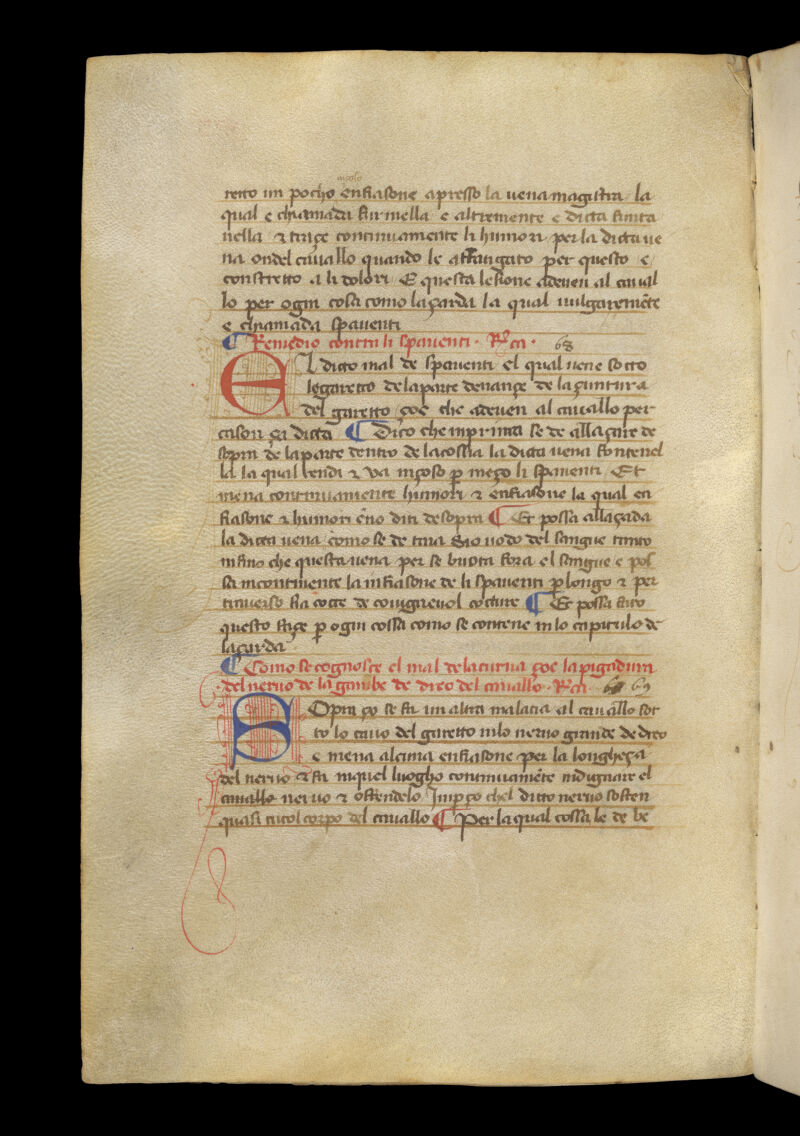 nçolo
retto un pocho enfiasone apresso la vena magistra la
qual e chiamada furmella e altremente e dicta funta
nella & traçe continuamente li humori per la dicta ve
na ondel cavallo quando le affatigato per questo e
constretto a li dolori E questa lesione adeven al caval
lo per ogni cosa como laçarda la qual vulgaremẽte
e chiamada spaventi
Remedio contra li spaventi. Rᵃ cã. 68
El dicto mal de spaventi el qual vene sotto
legaretto de la parte denançe de la çuntura
del garetto çoe che adeven al cavallo per
cason ça dicta Dico che imprima se de allaçare de
sopra de la parte dentro de la cossa la dicta vena fontenel
la la qual tendi & va inçoso p meço li spaventi Et
mena continuamente humori & enfiasone la qual en
fiasone & humori eno diti de sopra Et possa allaçada
la dicta vena como se de trar vodo del sangue tanto
infino che questa vena per se butta fora el sangue e pos
sa incontinente la infiasone de li spaventi p longo & per
traverso fia cotte de convignevol cocture Et possa fato
questo façe p ogni cossa como se contene in lo capitulo de
laçarda
Como se cognosce el mal de la curva çoe la pigadura
del nervo de la gambe de dreo del cavallo. Rᵃ cã. 69
Sopra ço se fa un altra malatia al cavallo sot
to lo cavo del garetto in lo nervo grande de dreo
e mena alcuna enfiasone per la longheça
del nervo & fa in quel luogho continuamẽte indignare el
cavallo nervo & offendelo Imperço chel ditto nervo sosten
quasi tutol corpo del cavallo Per la qual cossa le de be